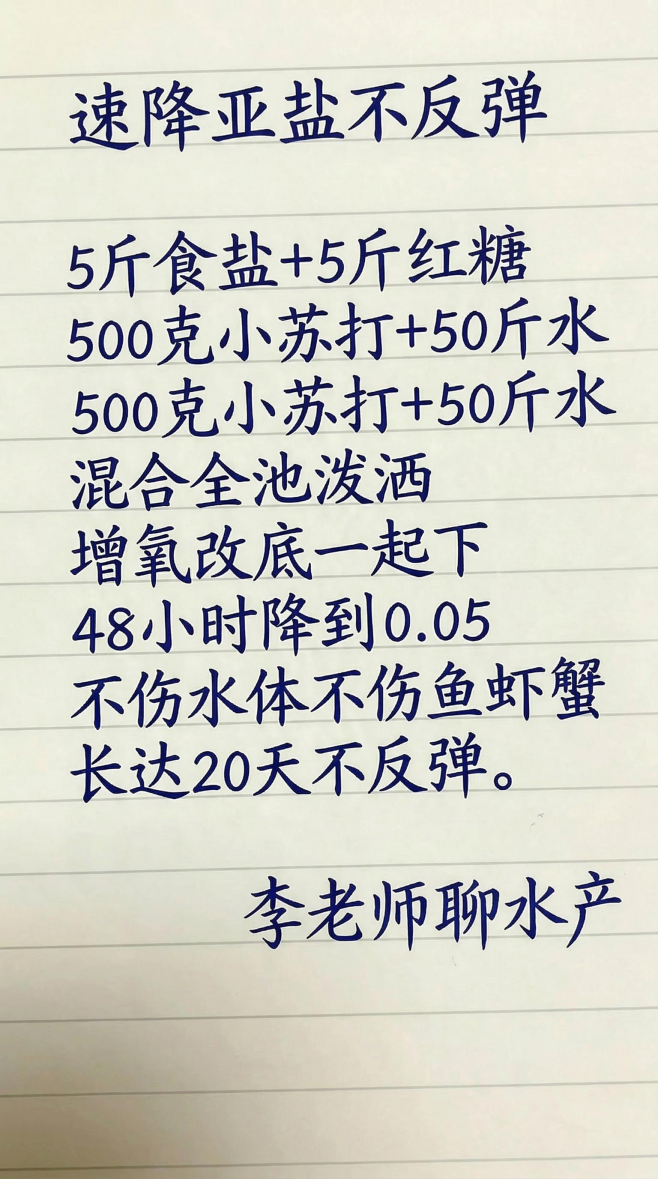 速降亚盐不反弹
5斤食盐+5斤红糖
500克小苏打+50斤水
500克小苏打+50斤水
混合全池泼洒
增氧改底一起下
48小时降到0.05
不伤水体不伤鱼虾蟹
长达20天不反弹。
李老师聊水产